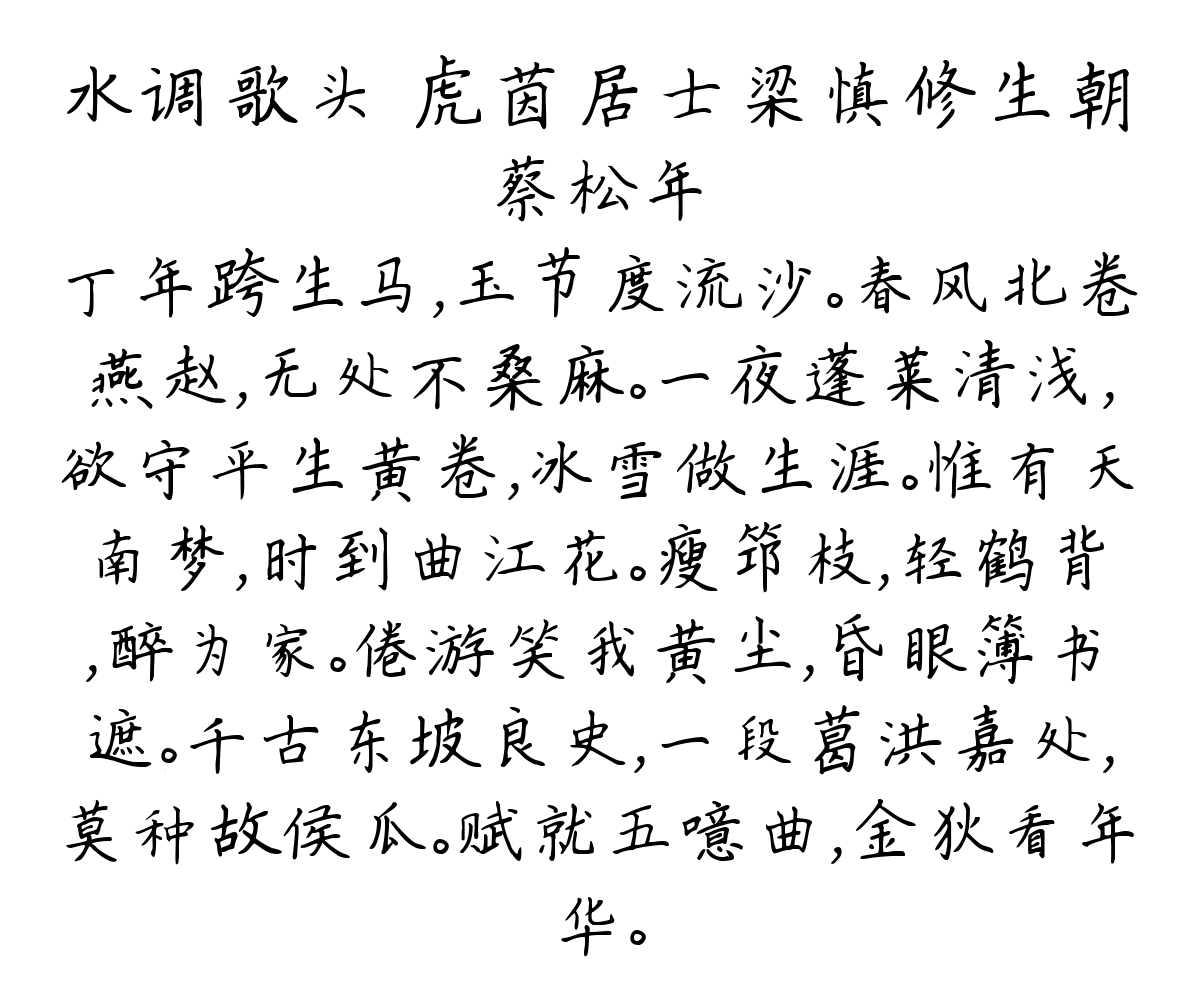 水调歌头 虎茵居士梁慎修生朝
蔡松年
丁年跨生马,玉节度流沙。春风北卷
燕赵,无处不桑麻。一夜蓬莱清浅,
欲守平生黄卷,冰雪做生涯。惟有天
南梦,时到曲江花。瘦筇枝,轻鹤背
,醉为家。倦游笑我黄尘,昏眼簿书
遮。千古东坡良史,一段葛洪嘉处,
莫种故侯瓜。赋就五噫曲,金狄看年
华。